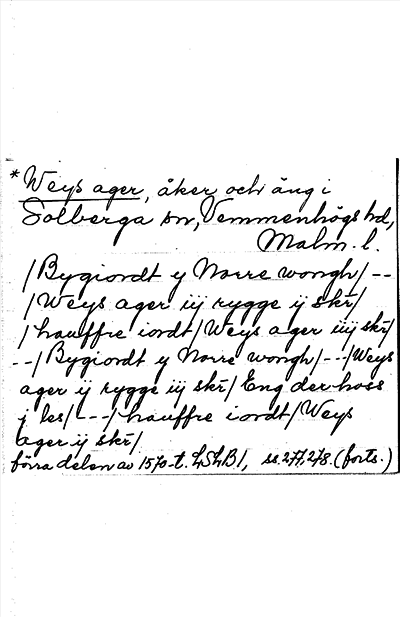 *Weys ager, åker och äng i
Solberga sn, Vemmenhögs hd,
Malm. l.
/Bygiordt y Norre wongh/--
/Weys ager iij rygge ij skr/
/hauffre iordt/Weys ager iiij skr/
--/Bygiordt y Norre wongh/---/Weys
ager ij rygge iij skr/Eng der hoss
j les/---/hauffre iordt/Weys
ager ij skr/
förra delen av 1570-t. LSLB1, ss. 277, 278. (forts.)